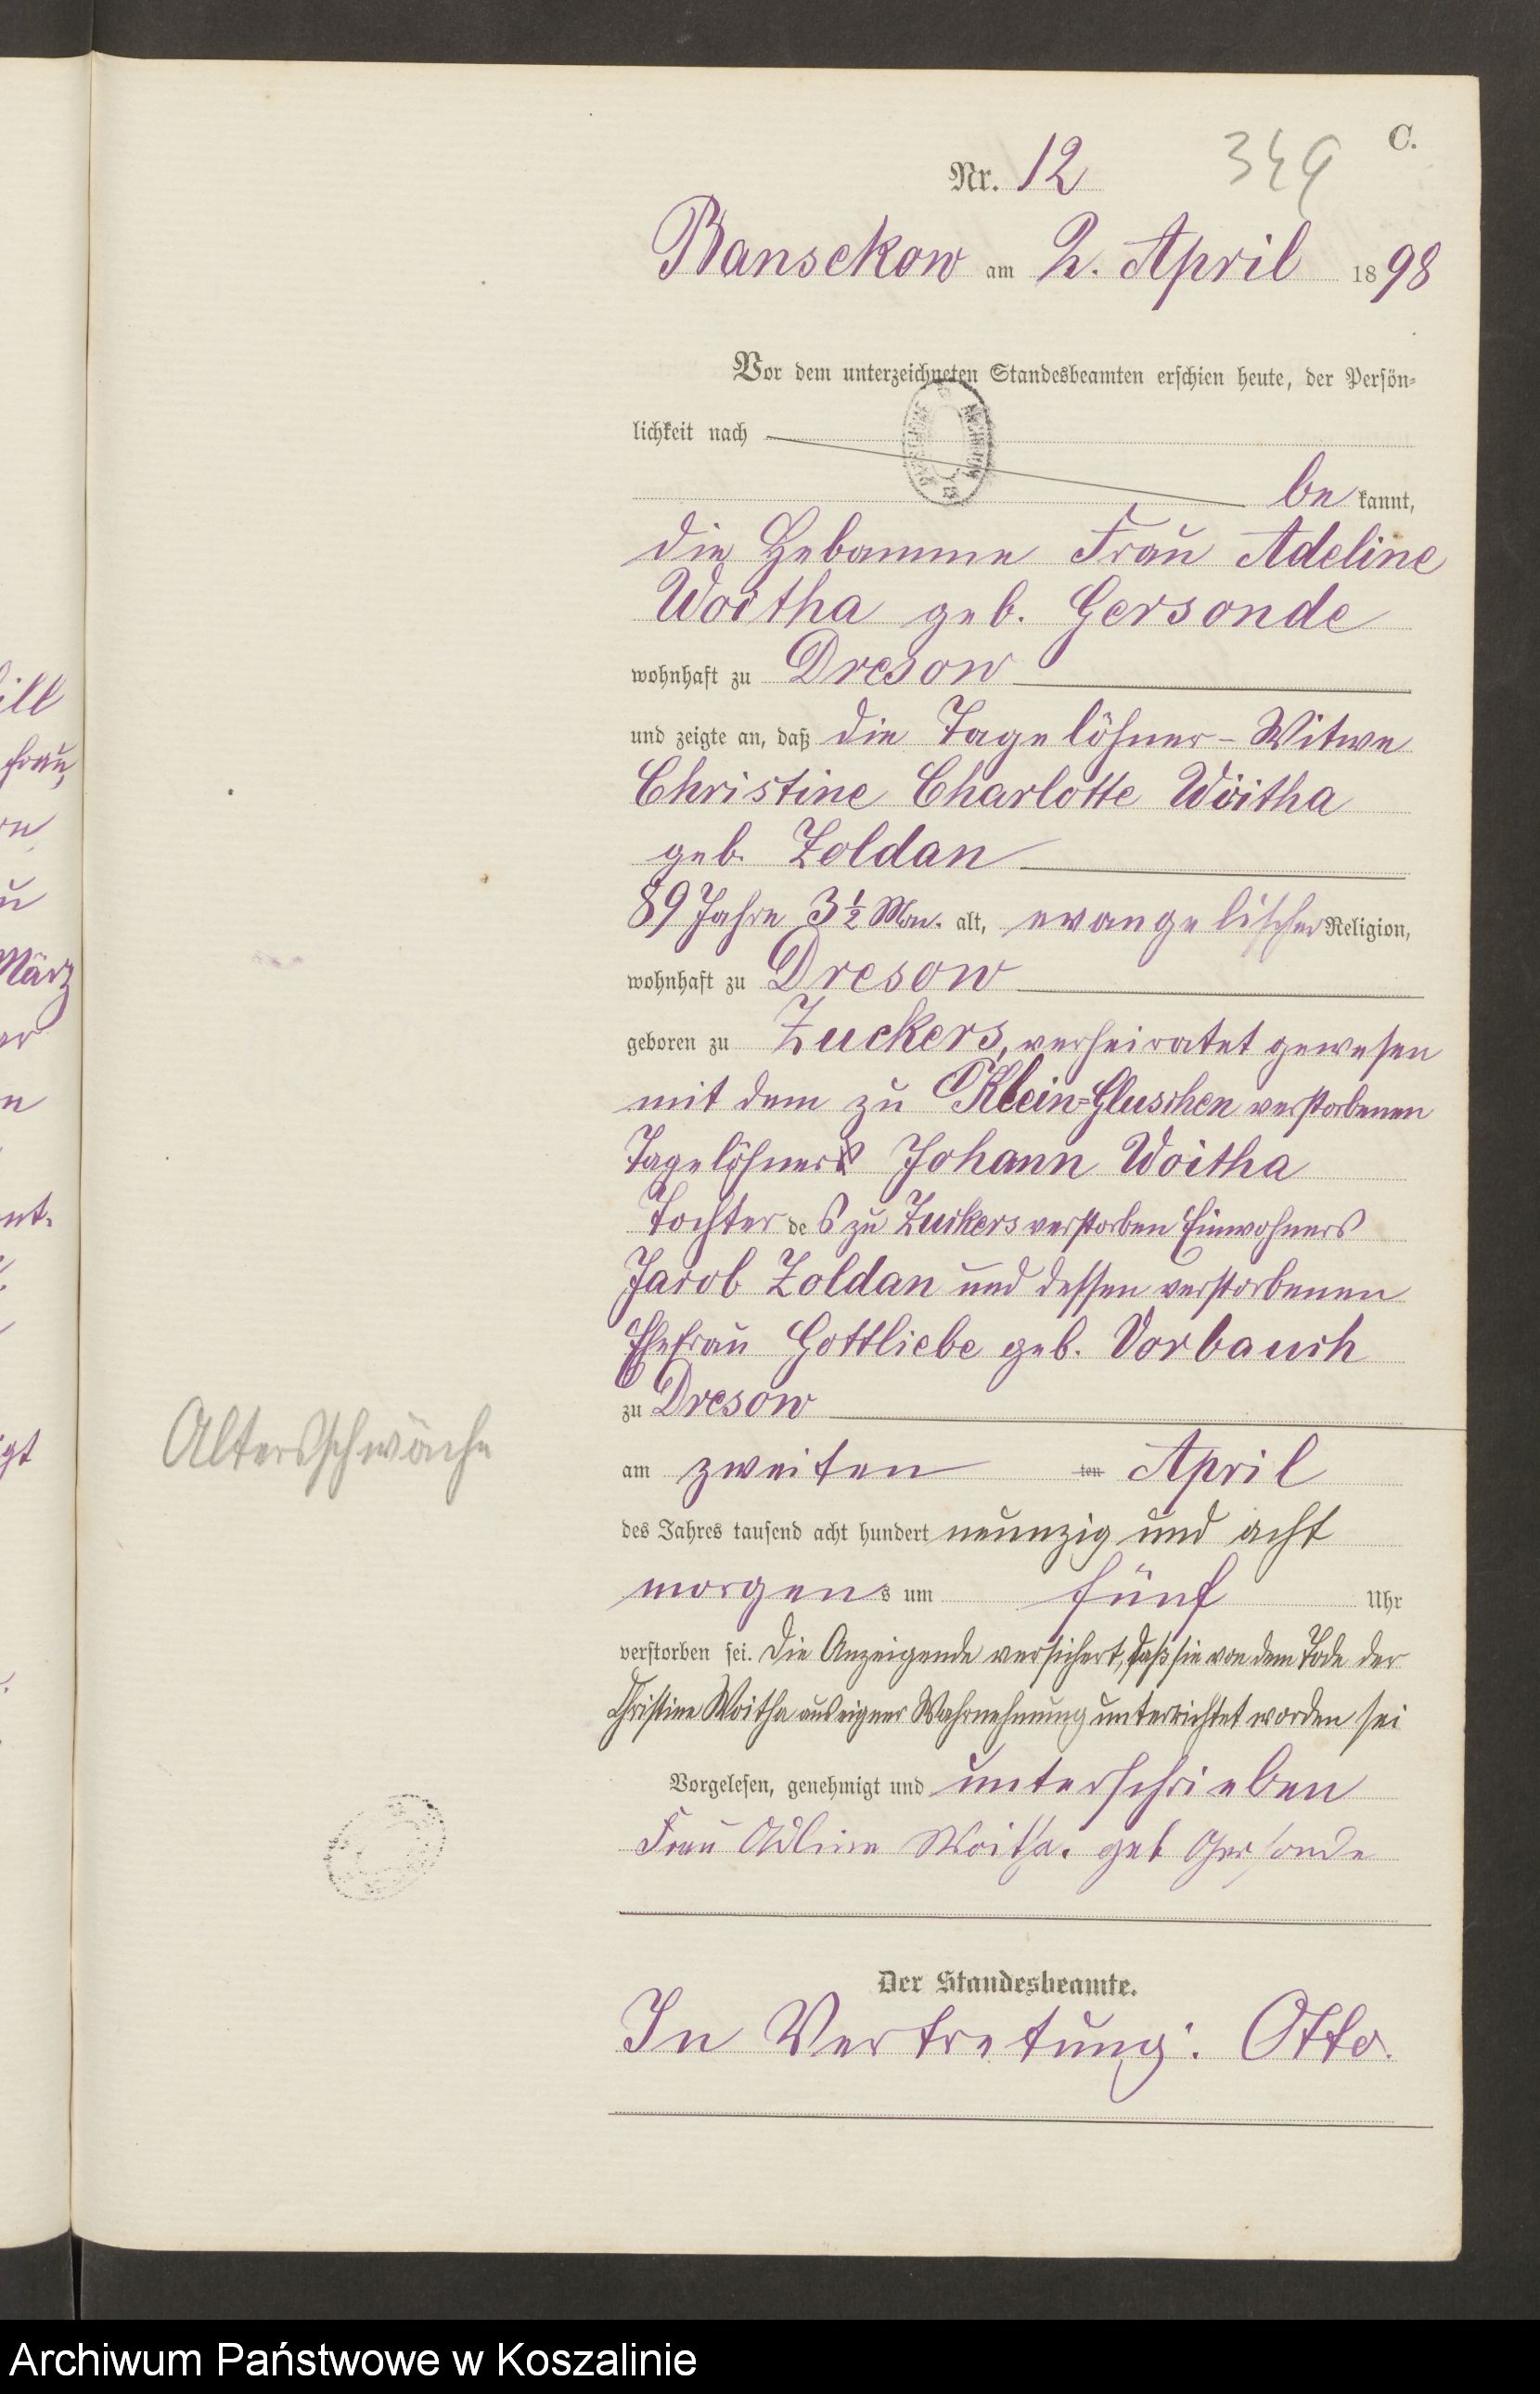 C.
Nr. 12
349
Bansekow am 2. April 1898
Vor dem unterzeichneten Standesbeamten erschien heute, der Persön-
lichkeit nach
be kannt,
die Hebamme Frau Adeline
Woitha geb. Gersonde
wohnhaft zu Dresow
und zeigte an, daß die Tagelöhner-Witwe
Christine Charlotte Woitha
geb. Zoldan
89 Jahre 3 ½ Mon. alt, evangelischer Religion,
wohnhaft zu Dresow
geboren zu Zuckers, verheiratet gewesen
mit dem zu Klein-Gluschen verstorbenen
Tagelöhner Johann Woitha
Tochter des zu Zuckers verstorben Einwohners
Jacob Zoldan und dessen verstorbenen
Ehefrau Gottliebe geb. Vorbauch
zu Dresow
Altersschwäche
am zweiten ten April
des Jahres tausend acht hundert neunzig und acht
morgens um fünf Uhr
verstorben sei. Die Anzeigende versichert, daß sie von dem Tode der
Christine Woitha aus eigner Wahrnehmung unterrichtet worden sei
Vorgelesen, genehmigt und unterschrieben
Frau Adline Woitha. geb Gersonde
Der Standesbeamte.
In Vertretung: Otto.
ill
Frau,
März
nt.
gt
Archiwum Państwowe w Koszalinie